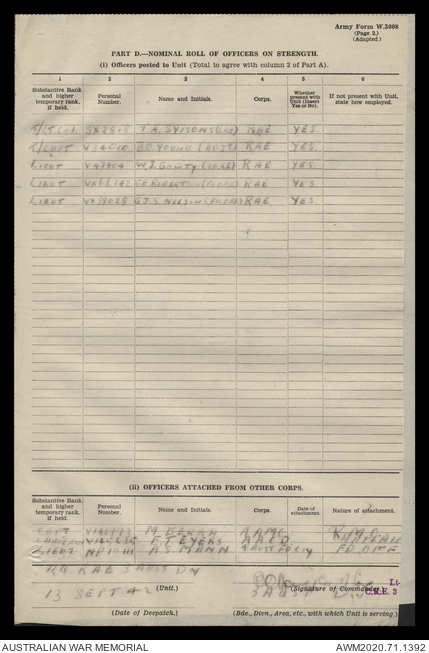 Army Form W.3008
(Page 2.)
(Adapted.)
PART D.—NOMINAL ROLL OF OFFICERS ON STRENGTH.
(i) Officers posted to Unit (Total to agree with column 2 of Part A).
1 2 3 4 5 6
Substantive Rank and higher temporary rank, if held. Personal Number. Name and Initials. Corps. Whether present with Unit (Insert Yes or No). If not present with Unit, state how employed.
T/Lt Col SX2818 J.A. SYMONS (CRE) RAE YES
T/CAPT B.D. YOUNG (ADJT) RAE YES
LIEUT W.J. RAE YES
LIEUT RAE YES
LIEUT VX39028 G.J.S. RAE YES
(ii) OFFICERS ATTACHED FROM OTHER CORPS.
Substantive Rank and higher temporary rank, if held. Personal Number. Name and Initials. Corps. Date of attachment. Nature of attachment.
CAPT M. AAMC R.M.O.
F.T. EYERS
LIEUT A.S. MANN
HQ RAE 3 AUST DIV
(Unit.) (Signature of Commander.) Lt
C.R.E. 3
13 SEPT 42 3 AUST DIV
(Date of Despatch.) (Bde., Divn., Area, etc., with which Unit is serving.)
AUSTRALIAN WAR MEMORIAL AWM2020.71.1392